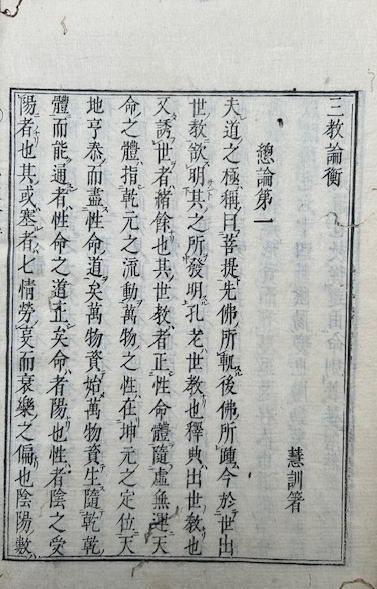 三教論衡
慧訓著
總論第一
夫道之極稱曰菩提先佛所軌後佛所随今於世出
世教欲明其之所發明孔老世教也釋典出世教也
又誘世者緒餘也其世教者正性命體隨虛無運天
命之體指乾元之流動萬物之性在坤元之定位天
地亨泰而盡性命道矣萬物資始萬物資生隨乾乾
體而能通者性命之道正矣命者陽也性者陰之受
陽者也其或塞者七情勞哀而衰樂之偏也陰陽數